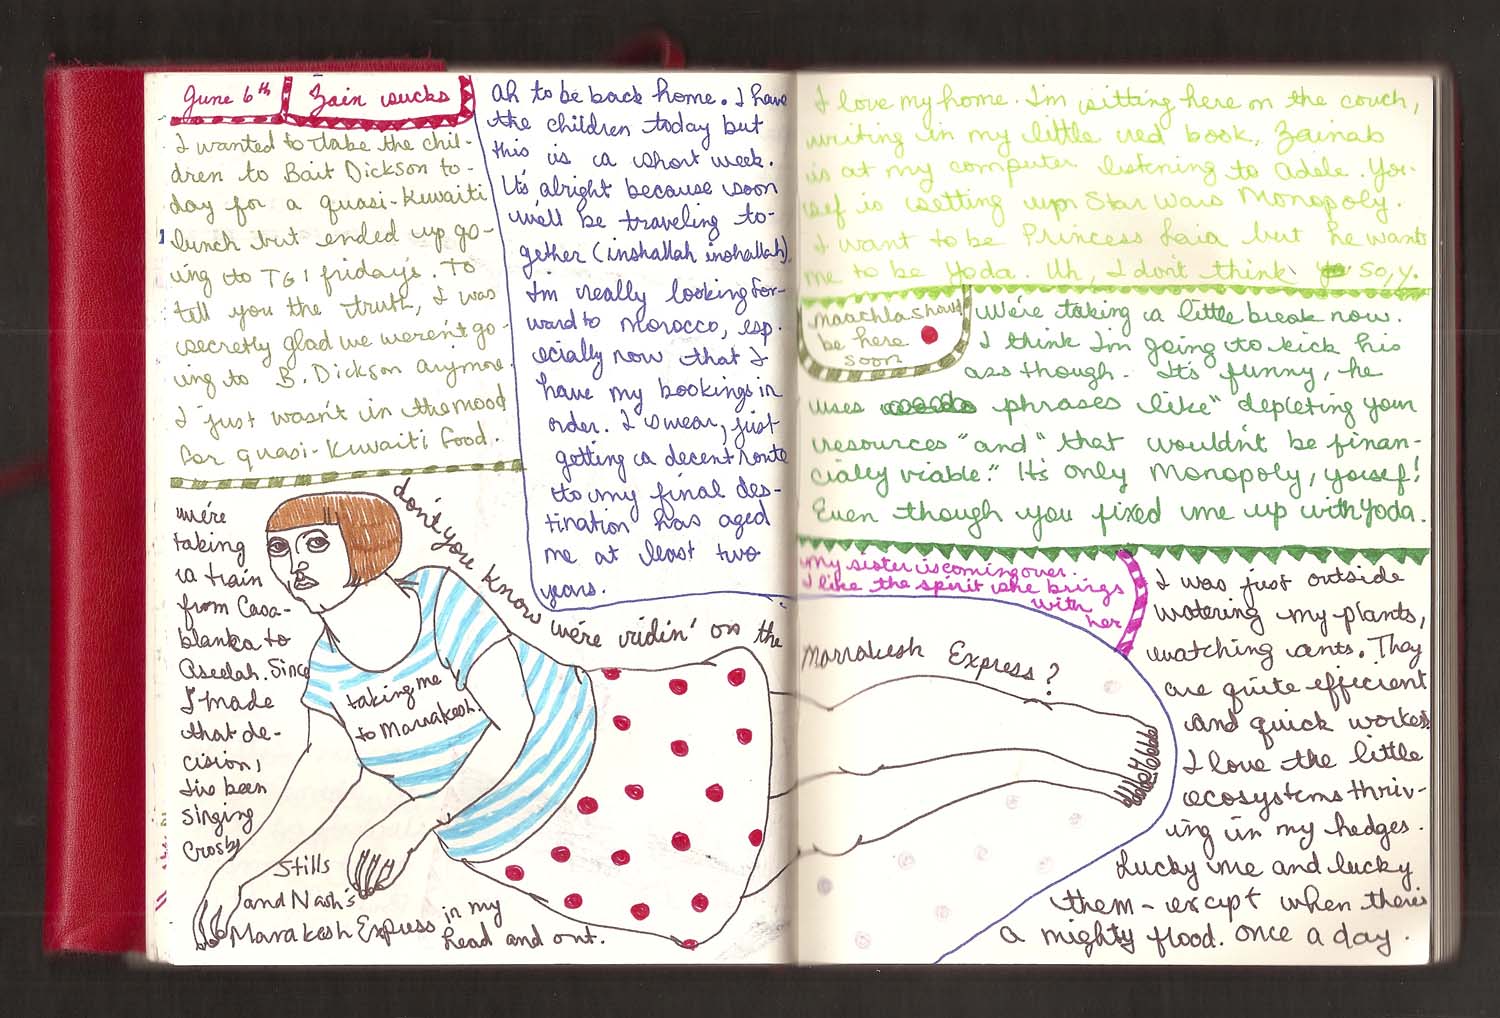 June 6th
Zain sucks
I wanted to take the chil-
dren to Bait Dickson to-
day for a quasi-Kuwaiti
lunch but ended up go-
ing to TGI friday's. To
tell you the truth, I was
secretly glad we weren't go-
ing to B. Dickson anymore.
I just wasn't in the mood
for quasi-Kuwaiti food.
Ah to be back home. I have
the children today but
this is a short week.
It's alright because soon
we'll be traveling to-
gether (inshallah inshallah).
I'm really looking for-
ward to Morocco, esp.
ecially now that I
have my bookings in
order. I swear, just
getting a decent route
to my final des-
tination has aged
me at least two
years.
we're
taking
a train
from Casa-
blanka to
Aseelah. Since
I made
that de-
cision,
I've been
singing
Crosby
Stills
and Nash's
Marakesh Express in my
head and out.
don't you know we're ridin' on the
Marrakesh Express?
taking me
to Marrakesh.
I love my home. I'm sitting here on the couch,
writing in my little red book, Zainab
is at my computer listening to Adele. You-
sef is setting up Star Wars Monopoly.
I want to be Princess Laia but he wants
me to be Yoda. Uh, I don't think so, y.
Maachla should
be here
soon
We're taking a little break now.
I think I'm going to kick his
ass though. It's funny, he
uses phrases like "depleting your
resources" and "that wouldn't be finan-
cially viable." It's only Monopoly, yousef!
Even though you fixed me up with Yoda.
my sister is coming over.
I like the spirit she brings
with
her
I was just outside
watering my plants,
watching ants. They
are quite efficient
and quick workers
I love the little
ecosystems thriv-
ing in my hedges.
Lucky me and lucky
them - except when there's
a mighty flood. Once a day.